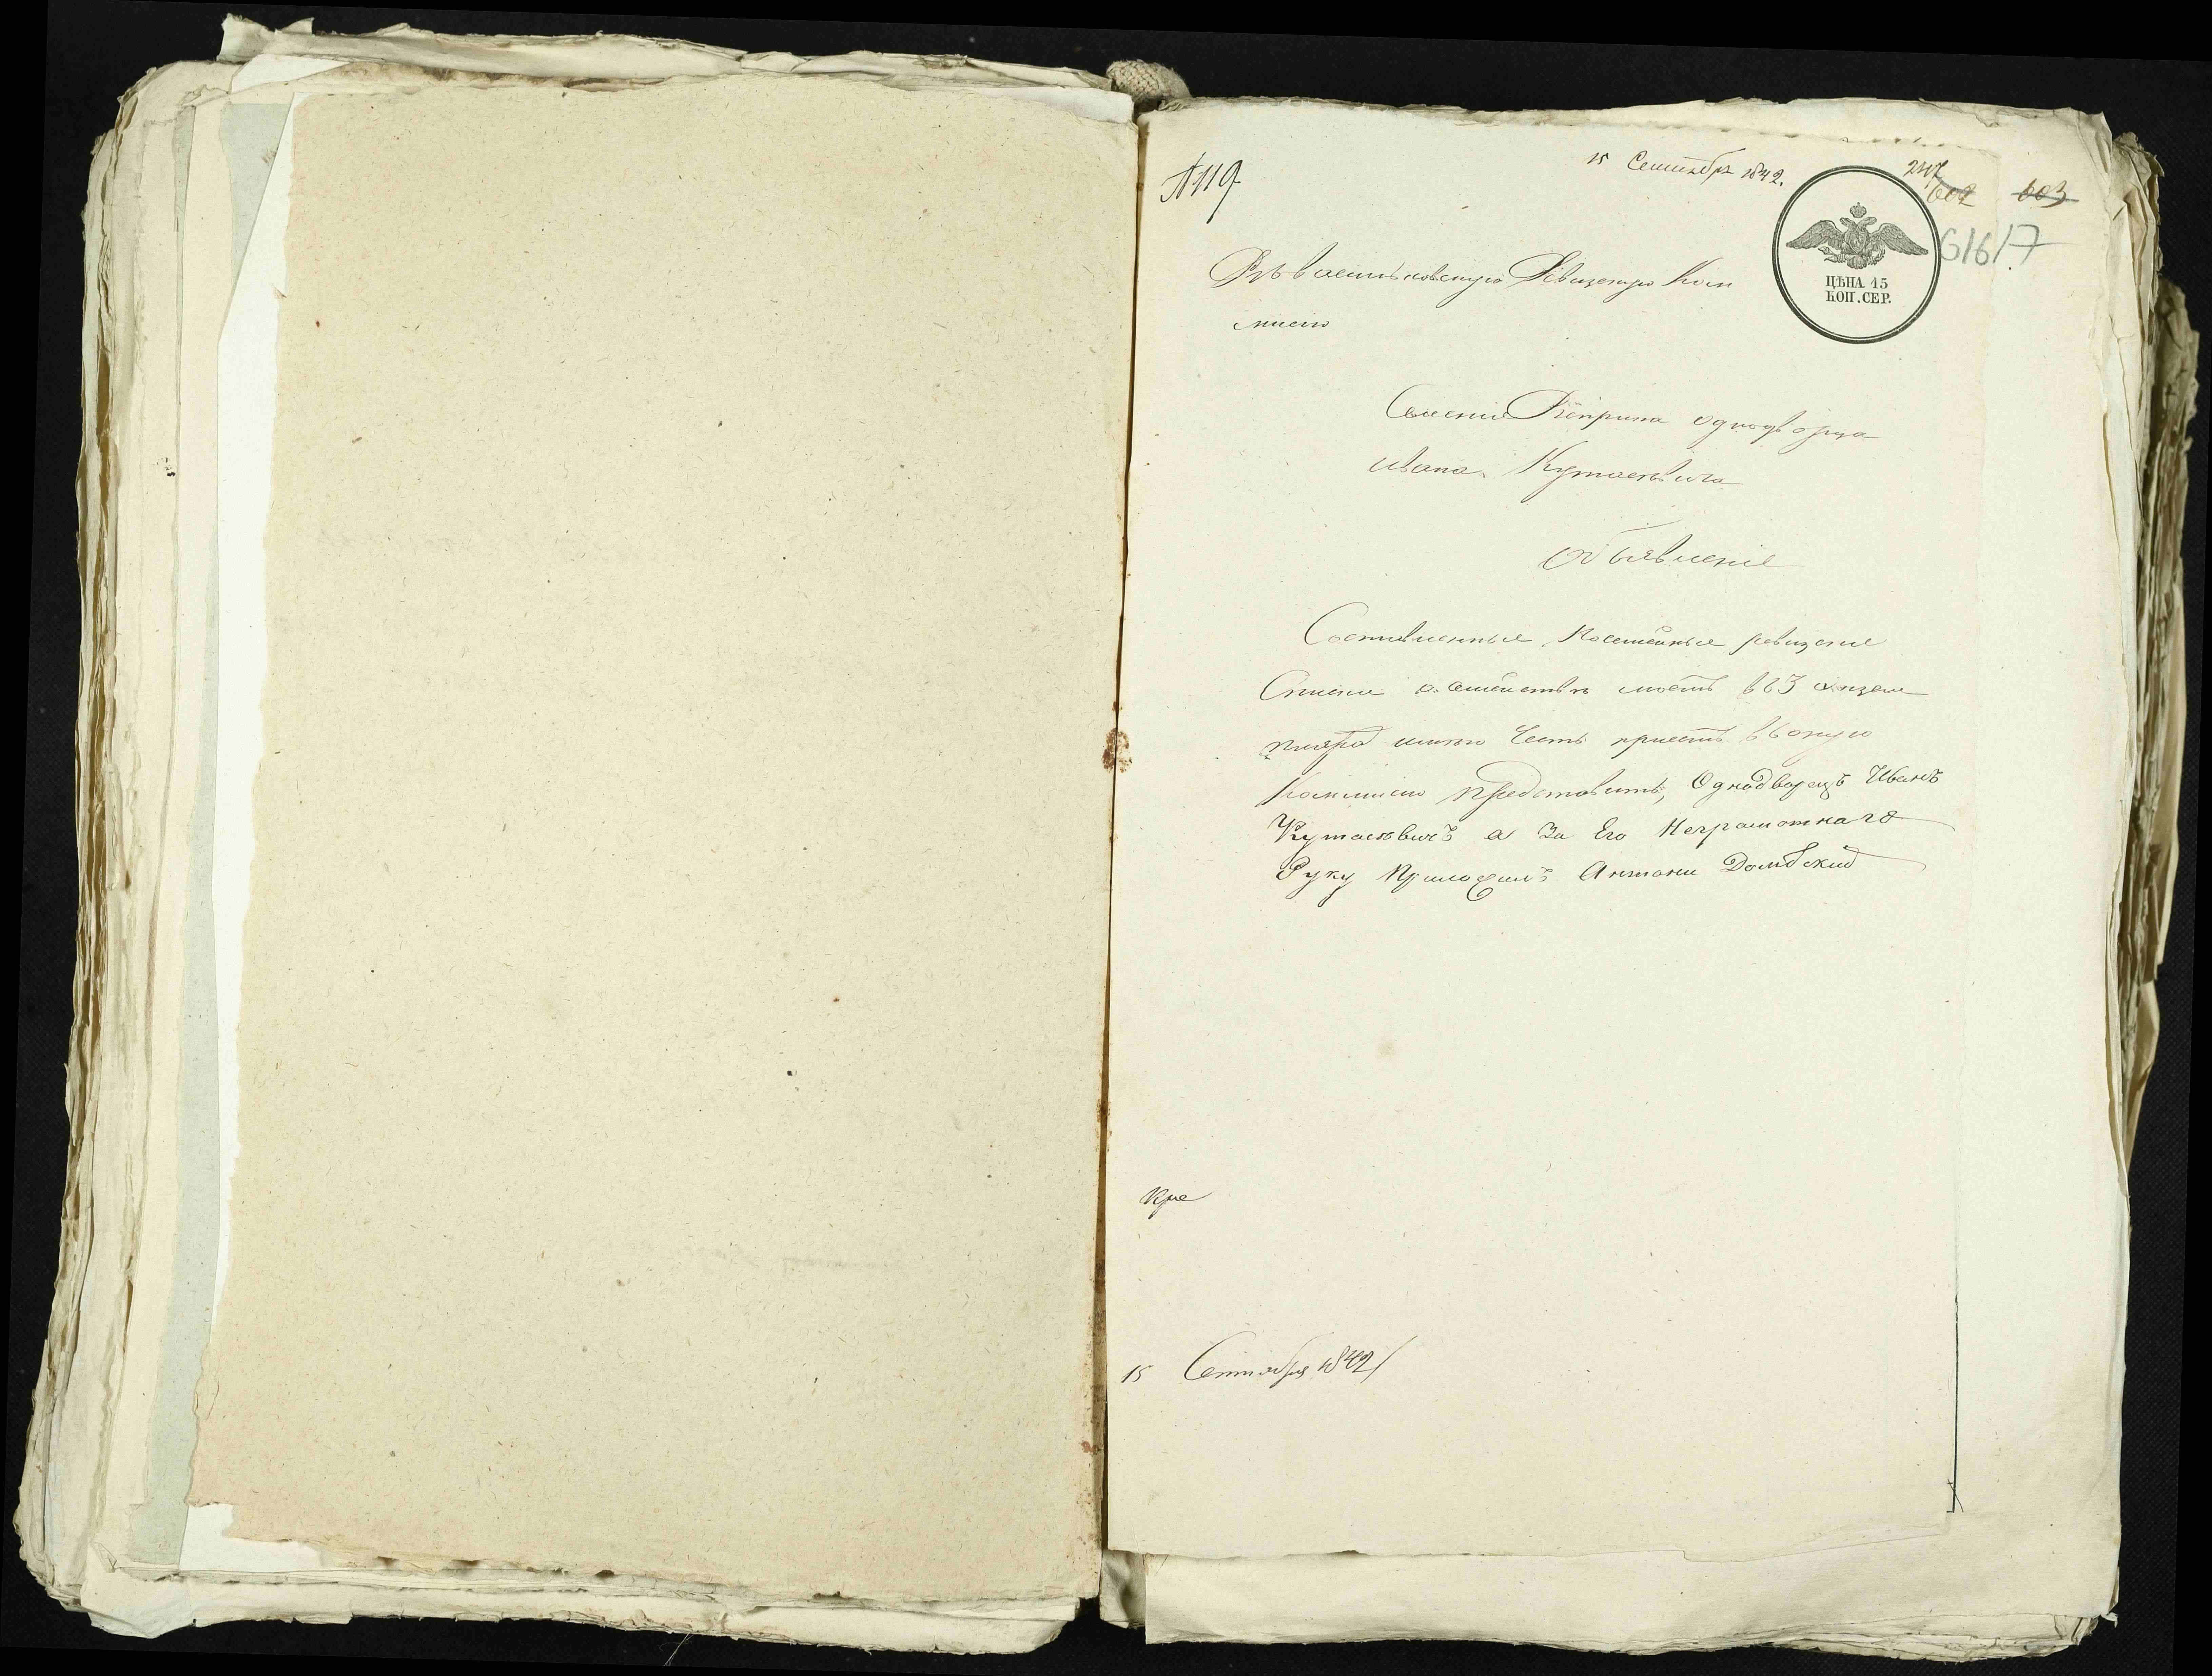 № 119
15 Сентября 1842.
247
602 603
616/7
ЦѢНА 15
КОП. СЕР.
Въ Васильковскую Ревизскую Ком
мисію
Селенія однодворца
Ивана Кутасевича
Объявленіе
Составленные посемейные ревизские
Списки о семействе моемъ въ 3 экзем
плярахъ имѣю честь при семъ въ оную
Коммисію представить, Однодворецъ Иванъ
Кутасевичъ а За Его Неграмотнаго
Руку Приложилъ Антони Домбский
15 Сентября 1842